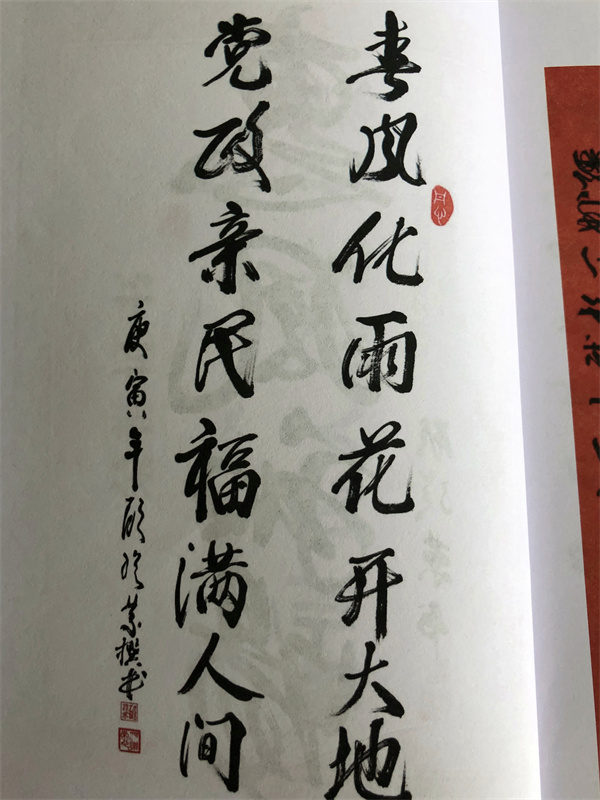 春风化雨花开大地
党政亲民福满人间
庚寅年顾玲業撰书